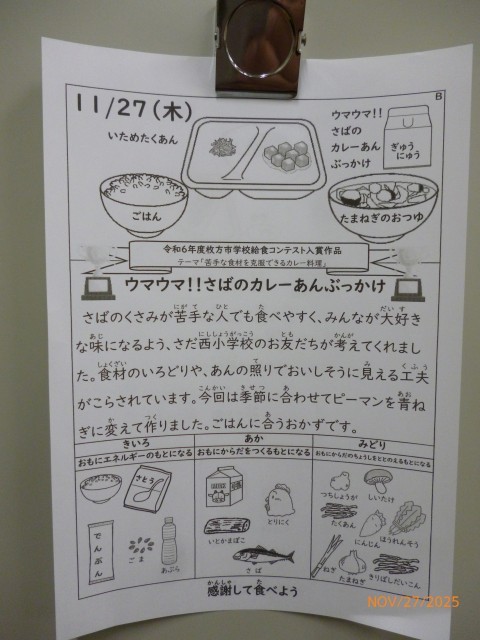 B
11/27(木)
いためたくあん
ウマウマ!!
さばの
カレーあん
ぶっかけ
ぎゅう
にゅう
ごはん
たまねぎのおつゆ
令和6年度枚方市学校給食コンテスト入賞作品
テーマ「苦手な食材を克服できるカレー料理」
ウマウマ!!さばのカレーあんぶっかけ
さばのくさみが苦手な人でも食べやすく、みんなが大好き
な味になるよう、さだ西小学校のお友だちが考えてくれまし
た。食材のいろどりや、あんの照りでおいしそうに見える工夫
がこらされています。今回は季節に合わせてピーマンを青ね
ぎに変えて作りました。ごはんに合うおかずです。
きいろ
あか
みどり
おもにエネルギーのもとになる
おもにからだをつくるもとになる
おもにからだのちょうしをととのえるもとになる
さとう
でんぷん
ごま
あぶら
とりにく
いとかまぼこ
さば
つちしょうが
しいたけ
たくあん
にんじん
ほうれんそう
ねぎ
たまねぎ
きりぼしだいこん
感謝して食べよう
NOV/27/2025